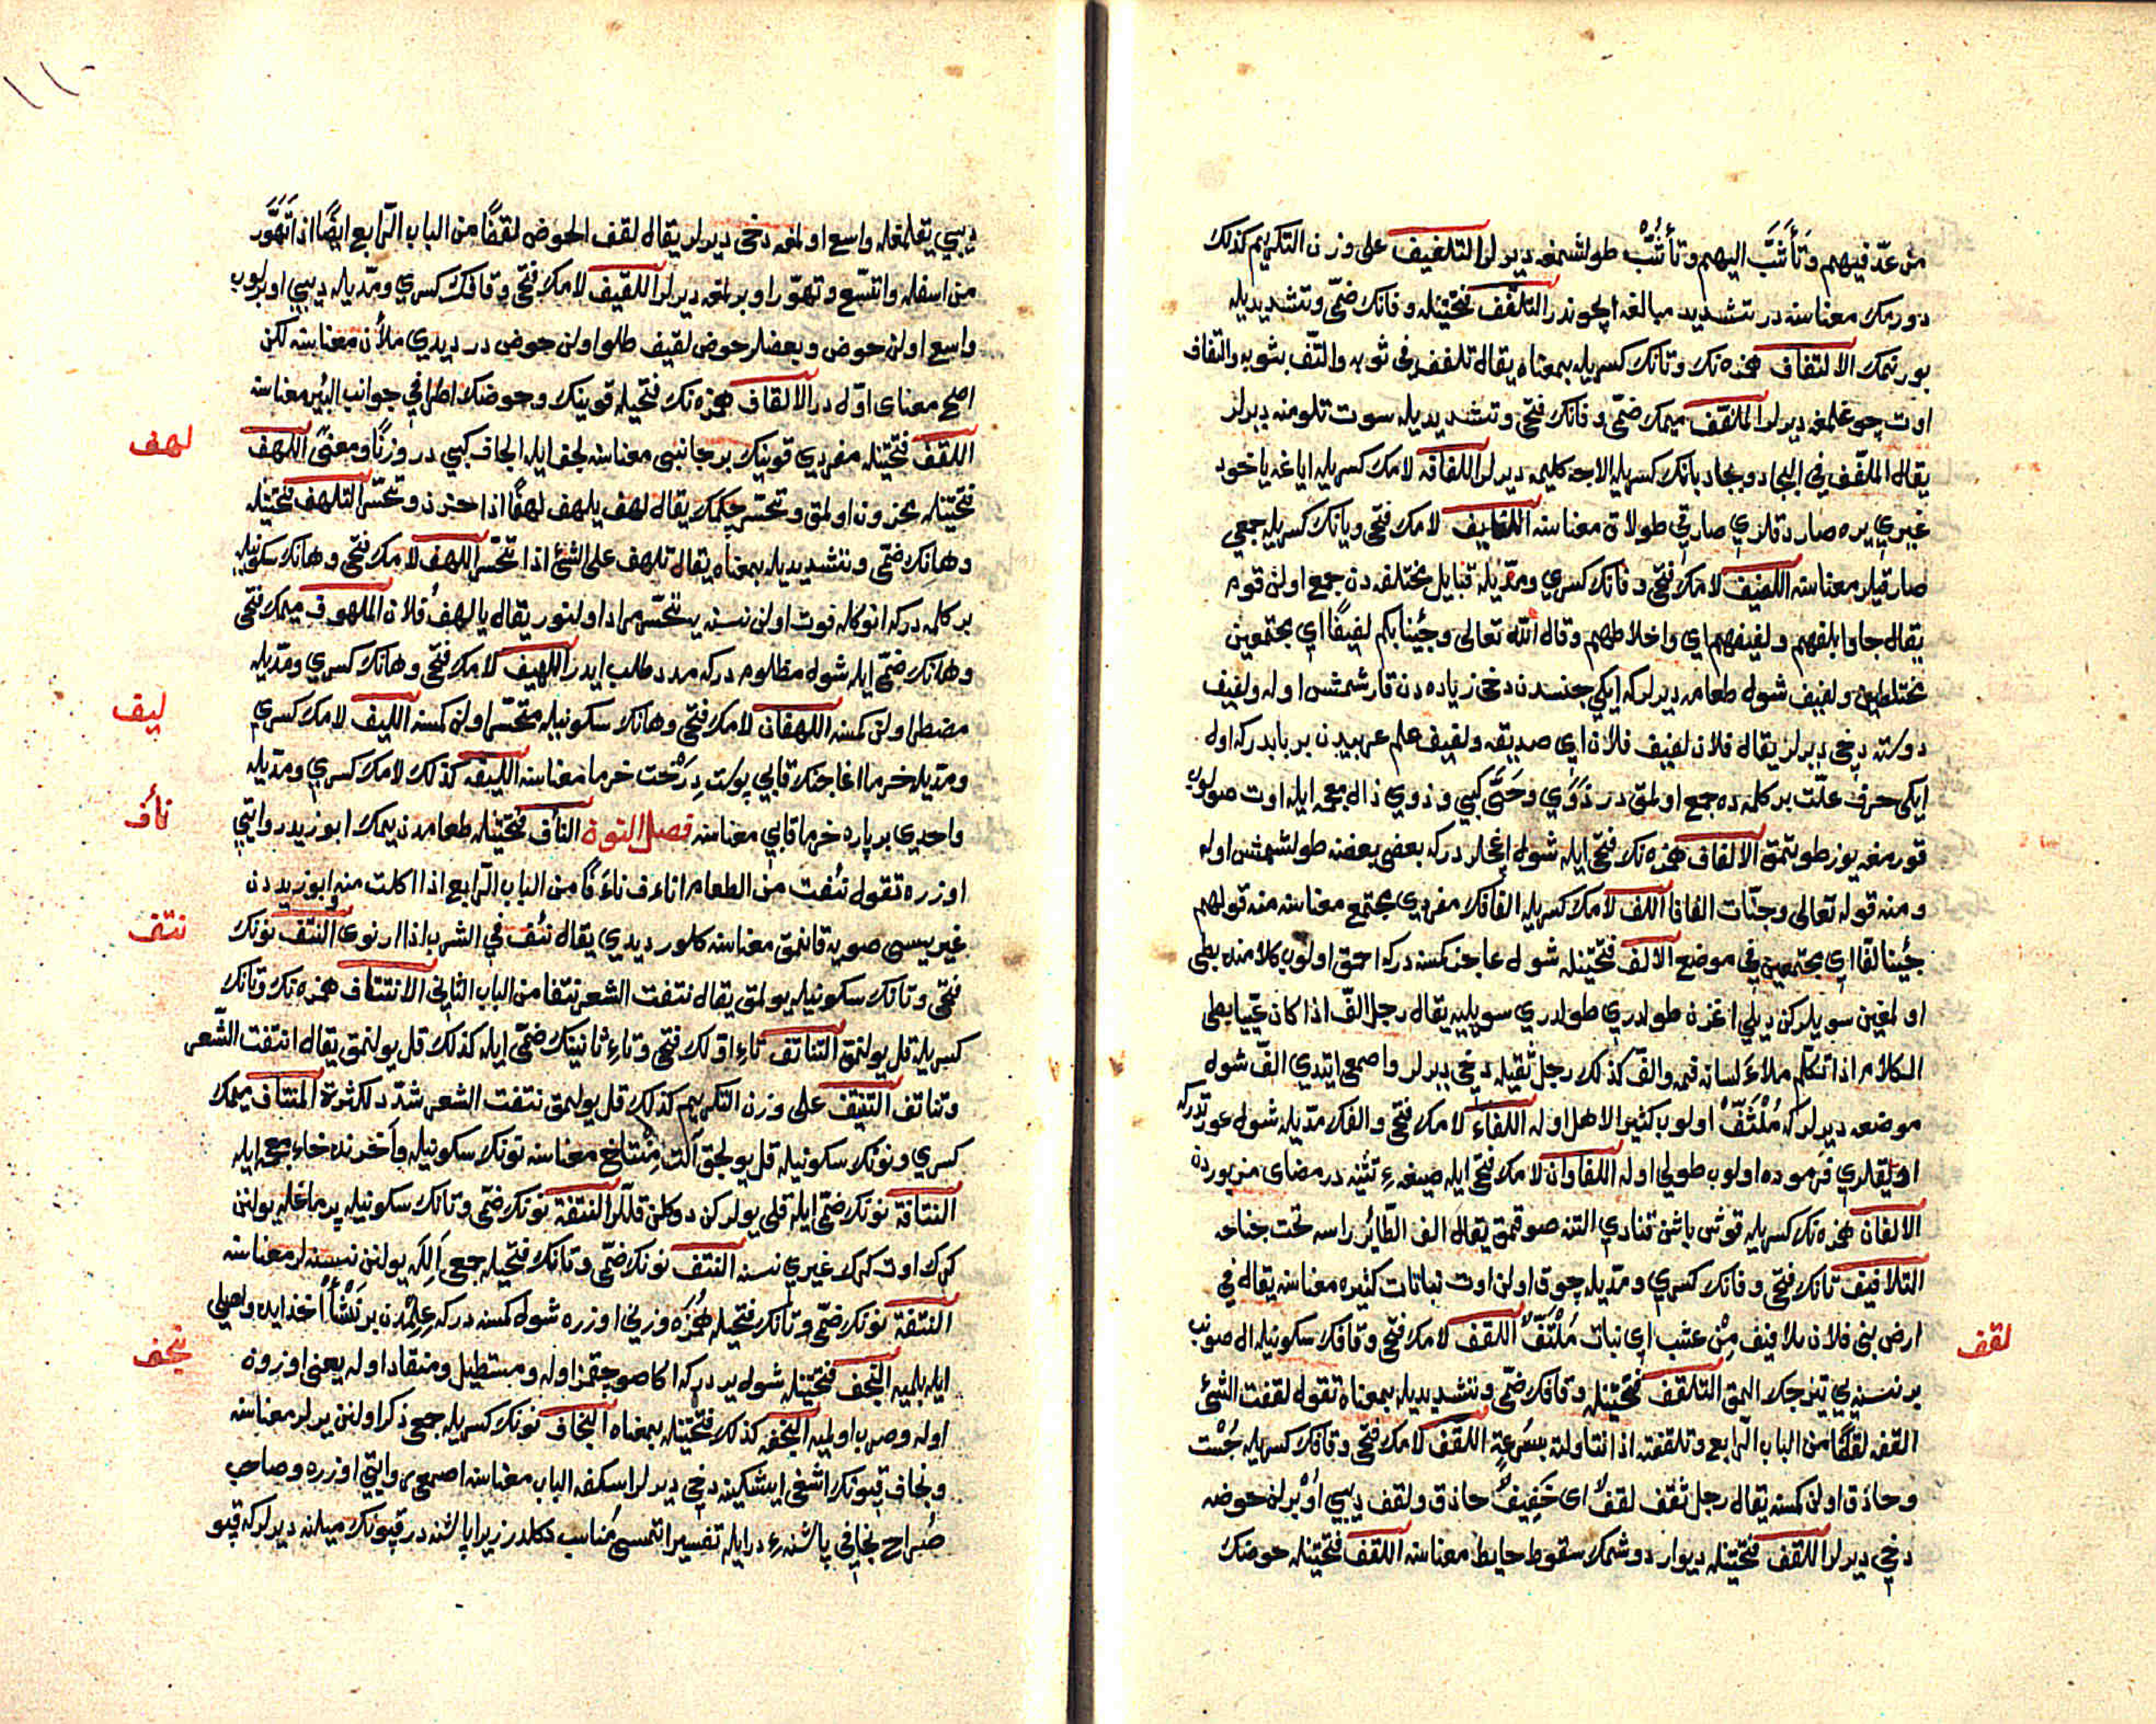 من عدّ فيهم وتأشّب اليهم وتأشّب طولشمغه ديرلر التلفيف على وزن التكريم كذلك
دورمك معناسنه در تشديد مبالغه ايچوندر التلفّف فتحتيله وفانك ضمّى وتشديديله
بورنمك الالتفاف همزه نك وتانك كسريله بمعناه يقال تلفف فى ثوبه والتفّ بثوبه والتفاف
اوت چوغلمغه ديرلر الملفّف ميمك ضمّى وفانك فتحى وتشديديله سوت تلومنه ديرلر
يقال الملفّف في البجاد وبجاد بانك كسريله الاجه كليمه ديرلر اللفافه لامك كسريله اياغه ياخود
غيري يره صاردقلري صارقي طولاق معناسنه اللفايف لامك فتحى ويانك كسريله جمعي
صارقيلر معناسنه اللفيف لامك فتحى وفانك كسري ومدّيله قبايل مختلفه دن جمع اولن قوم
يقال جاوا بلفهم ولفيفهم اي واخلاطهم وقال الله تعالى وجئنا بكم لفيفًا اي مجتمعين
مختلطين ولفيف شول طعامه ديرلر كه ايكي جنسدن دخى زياده دن قارشمش اوله ولفيف
دوسته دخى ديرلر يقال فلان لفيف فلان اي صديقه ولفيف علم عربيدن بر بابدر كه اول
ايكى حرف علّت بر كلمه ده جمع اولمق در ذَوِي وحَىّ كبي وذوي ذال معجمه ايله اوت صولوب
قورمغه يوز طوتمق الالفاف همزه نك فتحى ايله شول اغاجلر در كه بعضى بعضنه طولشمش اوله
ومنه قوله تعالى وجنّات الفافا اللف لامك كسريله الفافك مفردي مجتمع معناسنه منه قولهم
جئينا لفّا اي مجتمعين في موضع الالف فتحتيله شول عاجز كمسنه در كه احمق اولوب كلامنده بطى
اولمغين سويلركن ديلي اغزن طولدري طولدري سويليه يقال رجل الفّ اذا كان عييّا بطى
الكلام اذا تكلّم ملاءَ لسانه فمه والفّ كذلك رجل ثقيله دخى ديرلر واصمعى ايتدي الفّ شول
موضعه ديرلر كه مُلْتَفّ اولوب كثير الاهل اوله اللفاء لامك فتحى والفك مدّيله شول عورتدر كه
اويلقلري فرموده اولوب طولي اوله اللفاوان لامك فتحى ايله صيغهء تثنيه در معناى مزبورده
الالفاف همزه نك كسريله قوش باشن قنادي التنه صوقمق يقال الف الطّائر راسه تحت جناحه
التلافيف تانك فتحى وفانك كسري ومدّيله چوق اولن اوت نباتات كثيره معناسنه يقال في
ارض بني فلان تلافيف مِنْ عشب اي نبات مُلْتَفّ اللقف لامك فتحى وقافك سكونيله ال صونب
لقف
بر نسنه يي تيزجك المق التلقف فتحتيله وقافك ضمّى وتشديديله بمعناه تقول لقفت الشئ
القفه لقفًا من الباب الرّابع وتلقفته اذا تناولته بسُرعةٍ اللقف لامك فتحى وقافك كسريله چُسْت
وحاذق اولن كمسنه يقال رجل ثقف لقف اى خَفِيفٌ حاذق ولقف ديبي اوْيرلن حوضه
دخى ديرلر اللقف فتحتيله ديوار دوشمك سقوط حايط معناسنه اللقف فتحتيله حوضك
ديبي يقلمغله واسع اولمغه دخى ديرلر يقال لقف الحوض لقفًا من الباب الرّابع ايضًا اذا تَهَوَّر
من اسفله واتّسع وتهوّر اوبرلمغه ديرلر اللقيف لامك فتحى وقافك كسري ومدّيله ديبي اوبرلوب
واسع اولن حوض وبعضلر حوض لقيف طلو اولن حوض در ديدي ملآن معناسنه لكن
اصح معناى اوّل در الالقاف همزه نك فتحيله قوينك وحوضك اطرافي جوانب البئر معناسنه
اللقف فتحتيله مفردي قوينك بر جانبى معناسنه لجف ايله الجاف كبي در وزنًا ومعنًى اللهف
لهف
فتحتيله محزون اولمق وتحسّر چكمك يقال لهف يلهف لهفًا اذا حزن وتحسّر التلهف فتحتيله
وهانك ضمّى وتشديديله بمعناه يقال تلهف على الشئ اذا تحسّر اللهف لامك فتحى وهانك سكونيله
بر كلمه در كه انوكله فوت اولن نسنه يه تحسّر مراد اولنور يقال يا لهفُ فلان الملهوف ميمك فتحى
وهانك ضمّى ايله شول مظلوم در كه مدد طلب ايدر اللهيف لامك فتحى وهانك كسري ومدّيله
مضطر اولن كمسنه اللهفان لامك فتحى وهانك سكونيله متحسّر اولن كمسنه الليف لامك كسري
ليف
ومدّيله خرما اغاجنك قابي پوست دِرَخت خرما معناسنه الليفه كذلك لامك كسري ومدّيله
واحدي بر پاره خرما قابي معناسنه فصل النون النأف فتحتيله طعامدن يمك ابو زيد روايتي
نأف
اوزره تقول نئفت من الطعام اناءف ناءفًا من الباب الرّابع اذا اكلت منه وابو زيددن
غيريسى صويه قانمق معناسنه كلور ديدي يقال نئف في الشرب اذا ارتوى النتف نونك
نتف
فتحى وتانك سكونيله يولمق يقال نتفت الشعر نتفا من الباب الثانى الانتتاف همزه نك وتانك
كسريله قل يولنمق التناتف تاءِ اوّلك فتحى وتاءِ ثانينك ضمّى ايله كذلك قل يولنمق يقال انتتفت الشّعر
وتناتف التنتيف على وزن التكريم كذلك قل يولمق نتفت الشعر شدّد للكثرة المنتاف ميمك
كسري ونونك سكونيله قل يولجق آلت مِنْتاخ معناسنه نونك سكونيله وآخرنده خاءِ معجمه ايله
النتافة نونك ضمّى ايله قلى يولركن دوكلن قللر النتفة نونك ضمّى وتانك سكونيله پرماغله يولنن
كرك اوت كرك غيري نسنه النتف نونك ضمّى وتانك فتحيله جمعى اَلِلَه يولنن نسنه لر معناسنه
النتفة نونك ضمّى وتانك فتحيله هُمَزَه وزنى اوزره شول كمسنه در كه عِلِمْدن بر نَشْأً اخذ ايده واصلى
ايله بلميه النجف فتحتيله شول ير در كه اكا صو چقمز اوله ومستطيل ومنقاد اوله يعنى اوزون
نجف
اوله وصرپ اولميه النجفه كذلك فتحتيله بمعناه النجاف نونك كسريله جمعى ذكر اولنن يرلر معناسنه
ونجاف قپونك اشغى ايشكينه دخى ديرلر اسكفه الباب معناسنه اصمعى روايتي اوزره وصاحب
صُراح نجافي پاشنهءِ در ايله تفسير اتمسى مُناسب دكلدر زيرا پاشنه در قپونك ميلنه ديرلر كه قپو